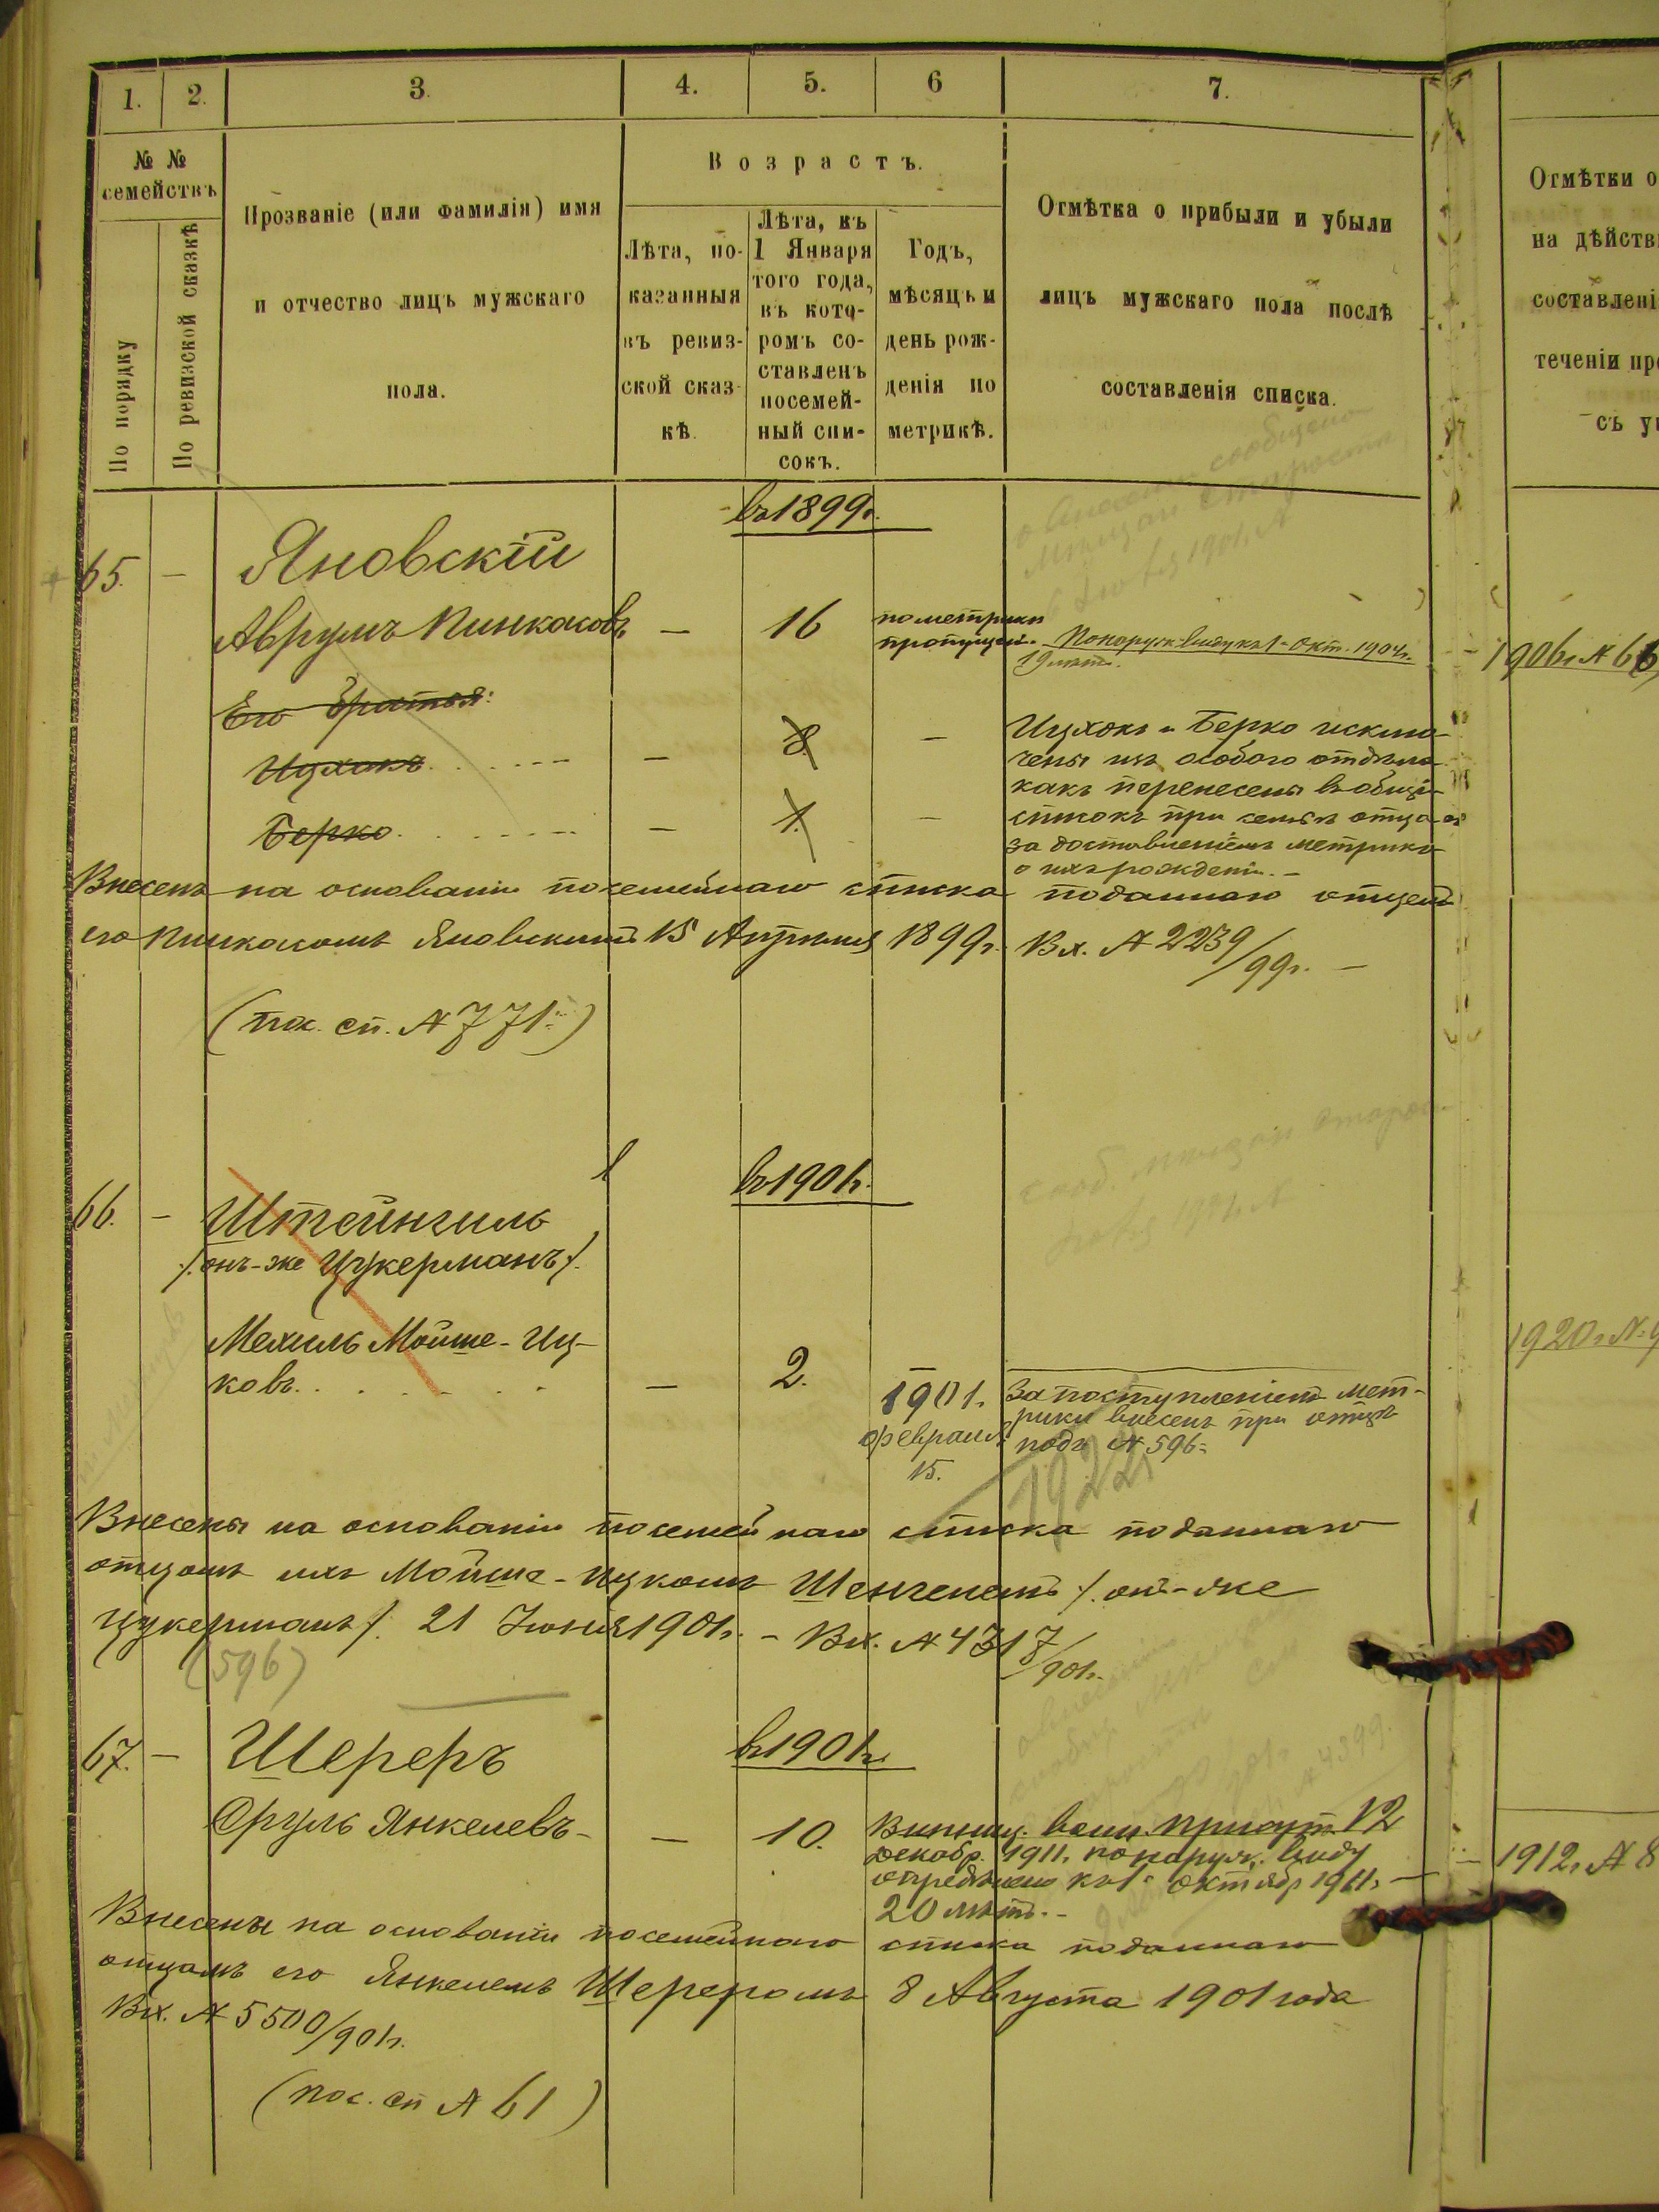 1. 2. 3. 4. 5. 6 7.
№ № семействъ
По порядку
По ревизской сказкѣ
Прозваніе (или фамилія) имя
и отчество лицъ мужскаго
пола.
Возрастъ.
Лѣта, по-
казанныя
въ ревиз-
ской сказ-
кѣ.
Лѣта, къ
1 Января
того года,
въ кото-
ромъ со-
ставленъ
посемей-
ный спи-
сокъ.
Годъ,
мѣсяцъ и
день рож-
денія по
метрикѣ.
Отмѣтка о прибыли и убыли
лицъ мужскаго пола послѣ
составленія списка.
Отмѣтки о
на дѣйств
составлені
теченіи пр
съ у
въ 1899г.
65. — Яновскій
Аврумъ Пинкасовъ — 16 по метрики
пропущен. По наруж виду къ 1 Окт. 1904г.
19 лѣтъ.
1906г. №66
Его братья:
Ицхокъ — 8. —
Берко — 7. —
Ицхокъ и Берко исклю-
чены изъ особого отдѣла
какъ перенесены въ общій
списокъ при семьѣ отца
за доставленіемъ метрики
о ихъ рожденіи. —
Внесенъ на основаніи посемейнаго списка поданнаго отцемъ
его Пинкасомъ Яновскимъ 15 Апрѣля 1899г. Вх. № 2239/99г. —
(пос. сп. № 771.)
въ 1901г.
66. — Штейнгиль
/. онъ-же Цукерманъ /.
Мехиль Мойше-Иц-
ковъ. — 2. 1901.
февраля
15.
За поступленіемъ мет-
рики внесенъ при отцѣ
подъ № 596.
1922
1920г. №
Внесены на основаніи посемейнаго списка поданнаго
отцомъ ихъ Мойше-Ицкомъ Шенгелемъ /. онъ-же
Цукерманъ /. 21 Іюня 1901г. — Вх. № 4317/901г.
(596)
въ 1901г.
67. — Шереръ
Сруль Янкелевъ — — 10. Винниц. воин. присут. 12
декабр. 1911. по наруж. виду
опредѣлено къ 1 октябр 1911г. —
20 лѣтъ. —
1912г. № 8
Внесены на основаніи посемейнаго списка поданнаго
отцомъ его Янкелемъ Шереромъ 8 Августа 1901 года
Вх. № 5500/901г.
(пос. сп № 61)